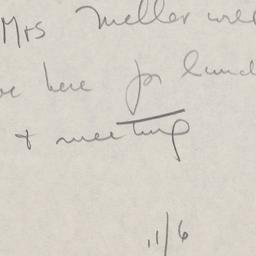 Mrs Meller wer
e here for lunc
+ meeting
11/6